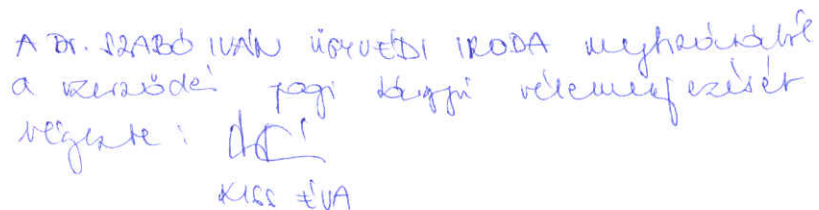 A Dr. SZABÓ IVÁN ÜGYVÉDI IRODA meghatalmazásából
a szerződés jogi tárgyú véleményezését
végezte:
KISS ÉVA